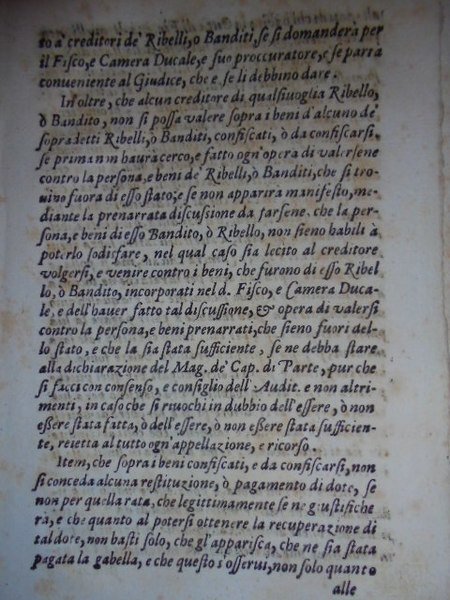 to a' creditori de' Ribelli, o Banditi, se si domandera per
il Fisco, e Camera Ducale, e suo proccuratore, e se parra
conueniente al Giudice, che e se li debbino dare.
In oltre, che alcun creditore di qualsiuoglia Ribello,
ò Bandito, non si possa valere sopra i beni d'alcuno de'
sopradetti Ribelli, ò Banditi, confiscati, ò da confiscarsi,
se prima non haura cerco, e fatto ogn'opera di valersene
contro la persona, e beni de' Ribelli, ò Banditi, che si tro-
uino fuora di esso stato; e se non apparira manifesto, me-
diante la prenarrata discussione da farsene, che la per-
sona, e beni di esso Bandito, ò Ribello, non sieno habili à
poterlo sodisfare, nel qual caso sia lecito al creditore
volgersi, e venire contro i beni, che furono di esso Ribel
lo, ò Bandito, incorporati nel d. Fisco, e Camera Duca-
le, e dell'hauer fatto tal discussione, & opera di valersi
contro la persona, e beni prenarrati, che sieno fuori del-
lo stato, e che la sia stata sufficiente, se ne debba stare
alla dichiarazione del Mag. de' Cap. di Parte, pur che
si facci con consenso, e consiglio dell'Audit. e non altri-
menti, in caso che si riuochi in dubbio dell'essere, ò non
essere stata fatta, ò dell'essere, ò non essere stata sufficien-
te, reietta al tutto ogn'appellazione, e ricorso.
Item, che sopra i beni confiscati, e da confiscarsi, non
si conceda alcuna restituzione, ò pagamento di dote, se
non per quella rata, che legittimamente se ne giustifiche
rà, e che quanto al potersi ottenere la recuperazione di
tal dote, non basti solo, che gl'apparisca, che ne sia stata
pagata la gabella, e che questo s'osserui, non solo quanto
alle